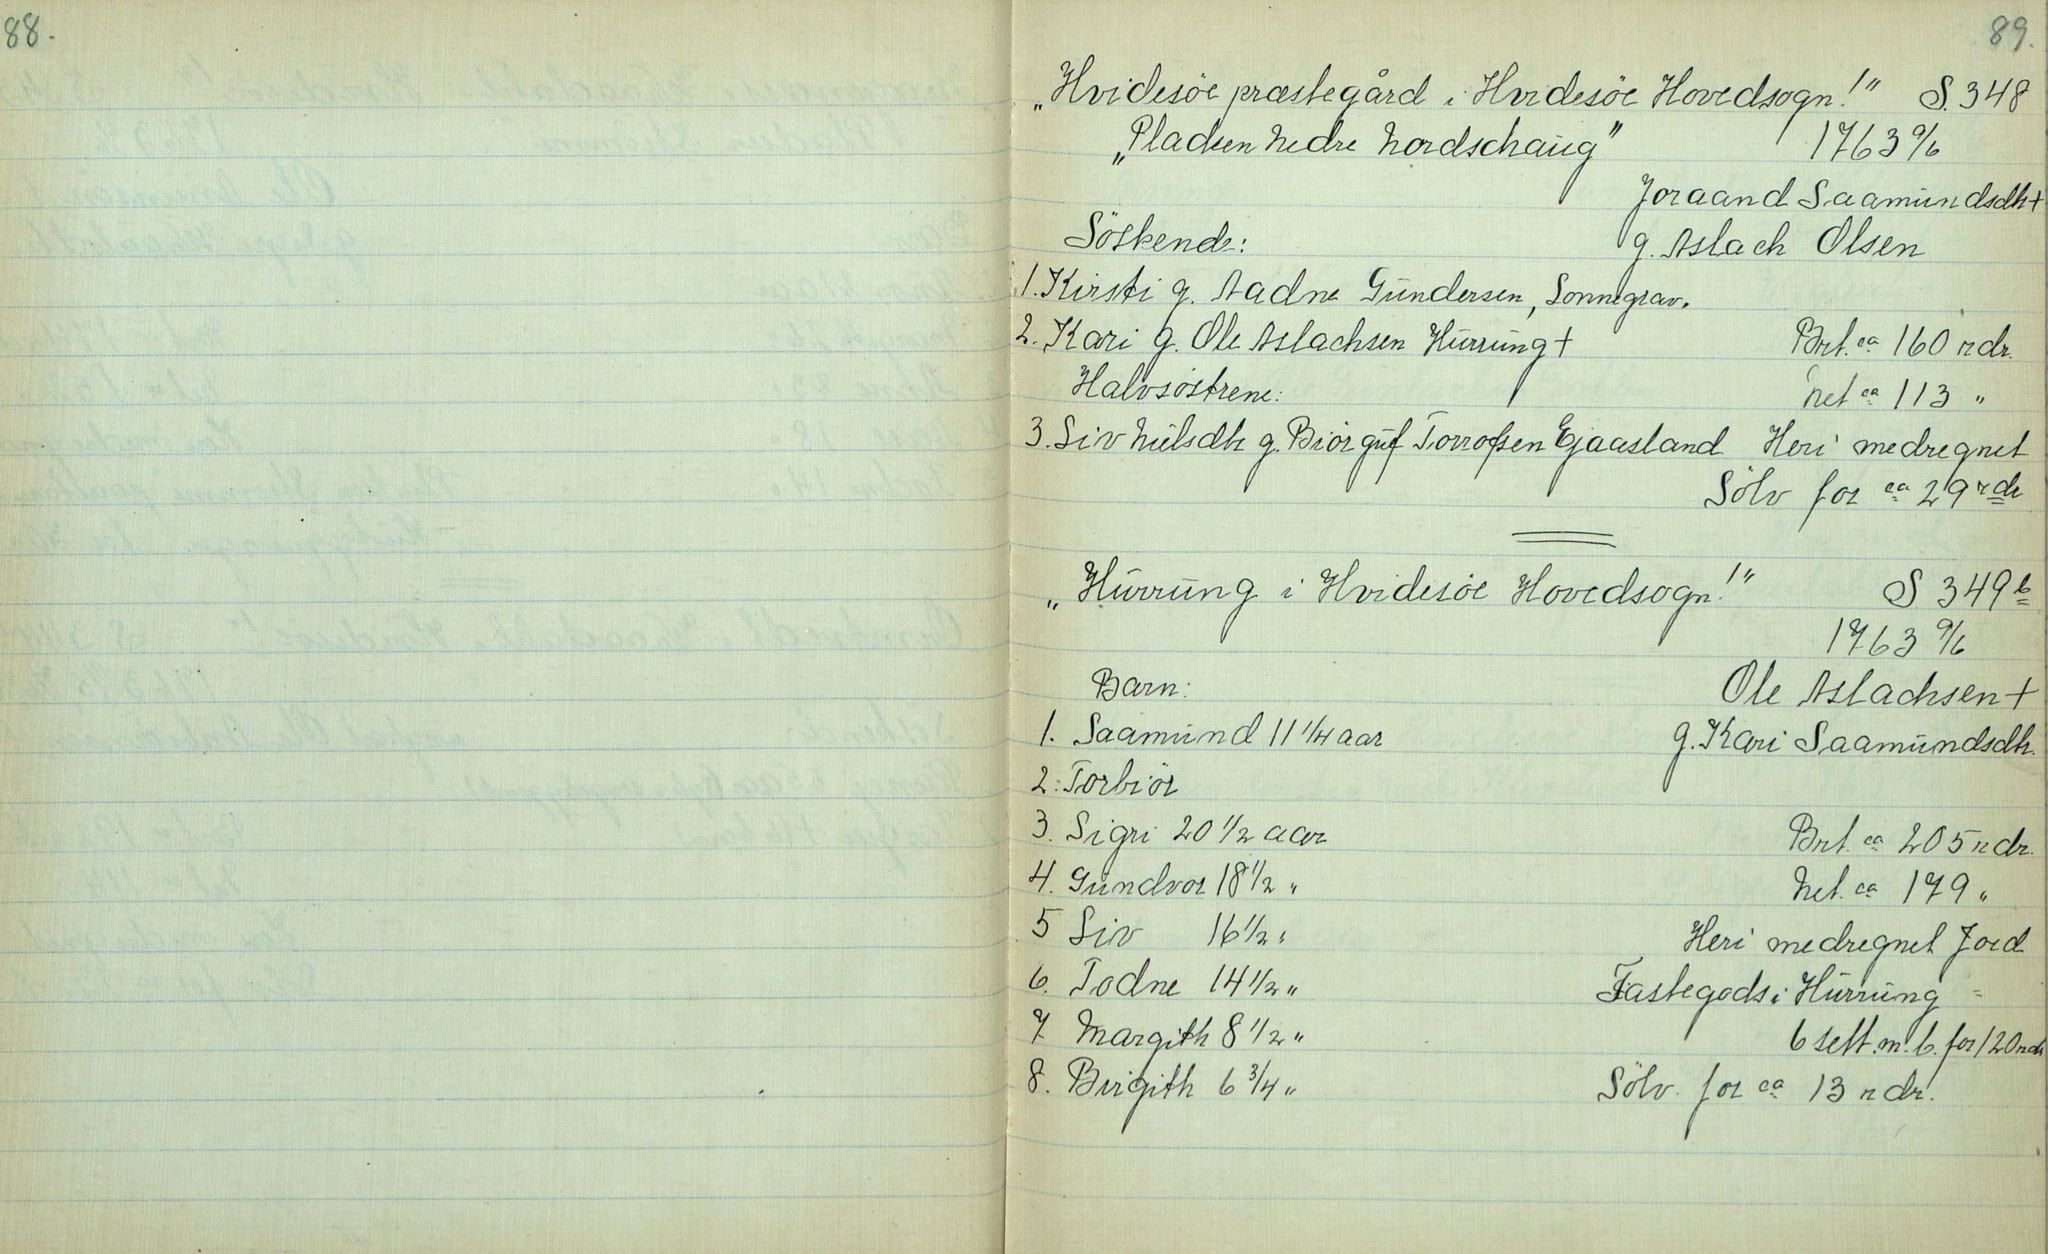 88.
89.
„Hvidesöe præstegård i Hvidesöe Hovedsogn!" S. 348
„Pladsen Nedre Nordschaug" 1763 9/6
Joraand Saamundsdh +
Söskende: g. Aslach Olsen
1. Kirsti g. Aadne Gundersen, Sonnegrav.
2. Kari g. Ole Aslachsen Hurrung + Brt. ca 160 rdr.
Halvsöstrene: Net ca 113 "
3. Siv Nielsdh g. Biörguf Torrofsen Ejaasland Heri medregnet
Sölv for ca 29 rdr
„Hurrung i Hvidesöe Hovedsogn!" S 349 b
1763 9/6
Barn: Ole Aslachsen +
1. Saamund 11 1/4 aar g. Kari Saamundsdh.
2. Torbiör
3. Sigri 20 1/2 aar Brt. ca 205 rdr.
4. Gundvor 18 1/2 " Net. ca 179 "
5 Siv 16 1/2 " Heri medregnet Jord
6. Todne 14 1/2 " Fastegods i Hurrung =
7. Margith 8 1/2 " 6 sett. m. b. for 120 rdr
8. Birgith 6 3/4 " Sölv for ca 13 rdr.